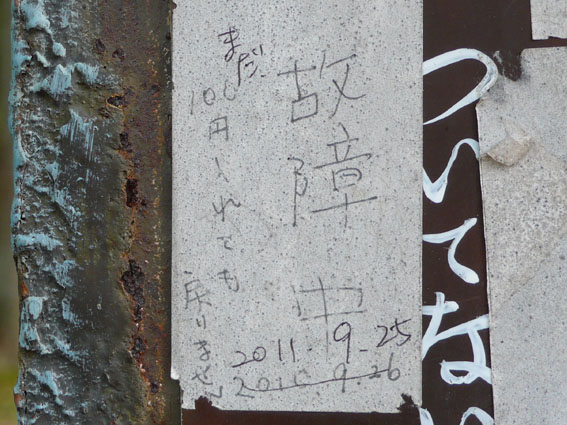 ついてな
まだ、
故障中
100円入れても
戻りません
2011.9.25
2010 9.26